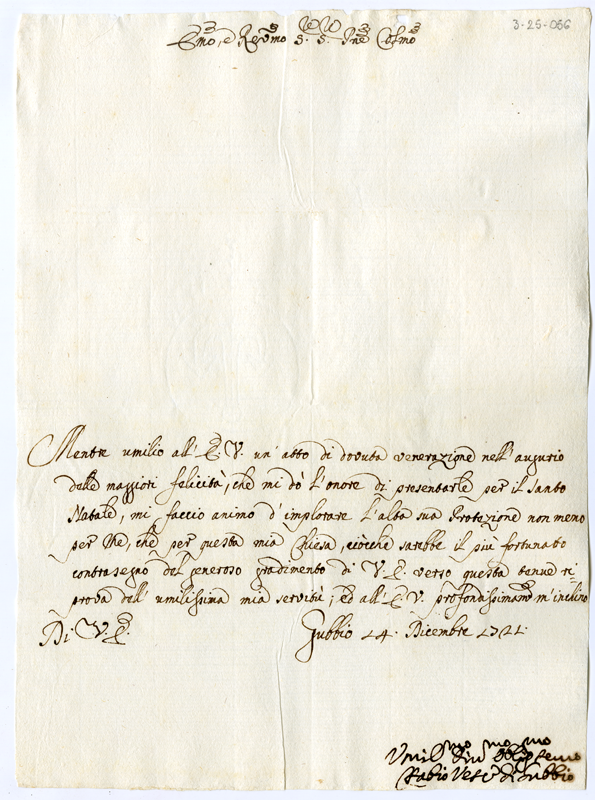 3-25-056
Emo, e Revmo S. S. Pne Colmo
Mentre umilio all' E. V. un' atto di dovuta venerazione nell' augurio
delle maggiori felicità, che mi dò l'onore di presentarle per il Santo
Natale, mi faccio animo d'implorare l'alta sua Protezione non meno
per me, che per questa mia Chiesa, ciocche sarebbe il più fortunato
contrasegno del generoso gradimento di V. E. verso questa tenue ri=
prova dell' umilissima mia servitù; ed all' E. V. profondissimamte m'inchino
Di V. E. Gubbio 24. Dicembre 1721.
Umilmo Divmo Obligmo servo
Fabio Vesco di Gubbio